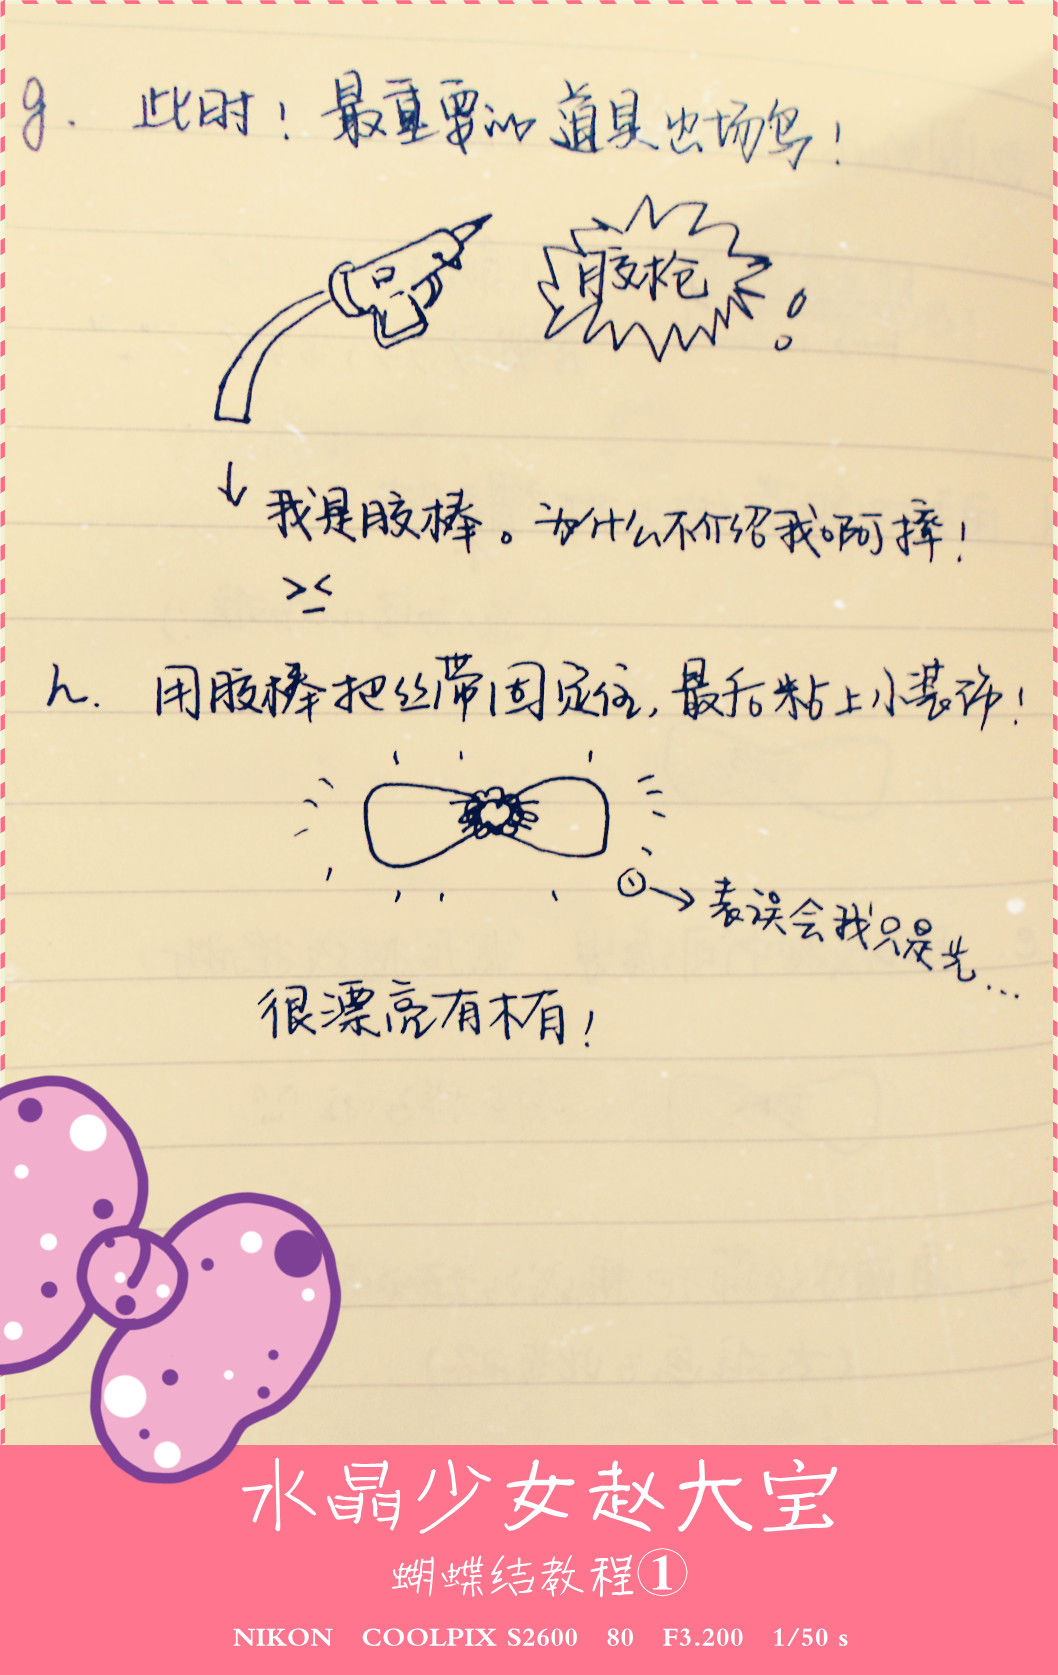 g. 此时！最重要的道具出场鸟！
胶枪！
↓ 我是胶棒。为什么不介绍我啊摔！
><
h. 用胶棒把丝带固定住，最后粘上小装饰！
→ 表误会我只是光...
很漂亮有木有！
水晶少女赵大宝
蝴蝶结教程①
NIKON COOLPIX S2600 80 F3.200 1/50 s